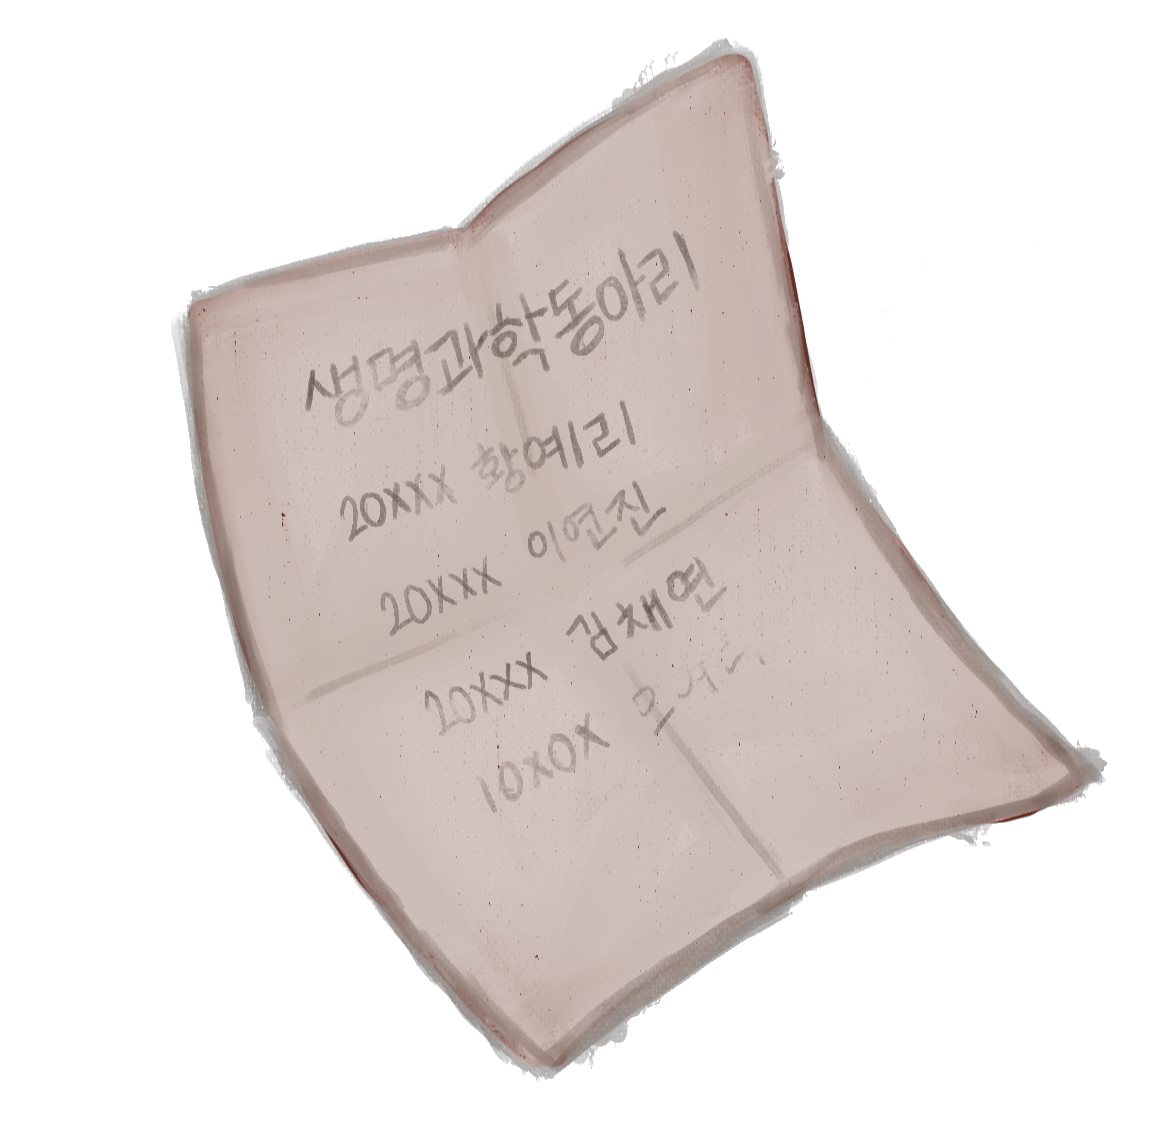 생명과학동아리
20xxx 황예리
20xxx 이연진
20xxx 김채연
10x0x